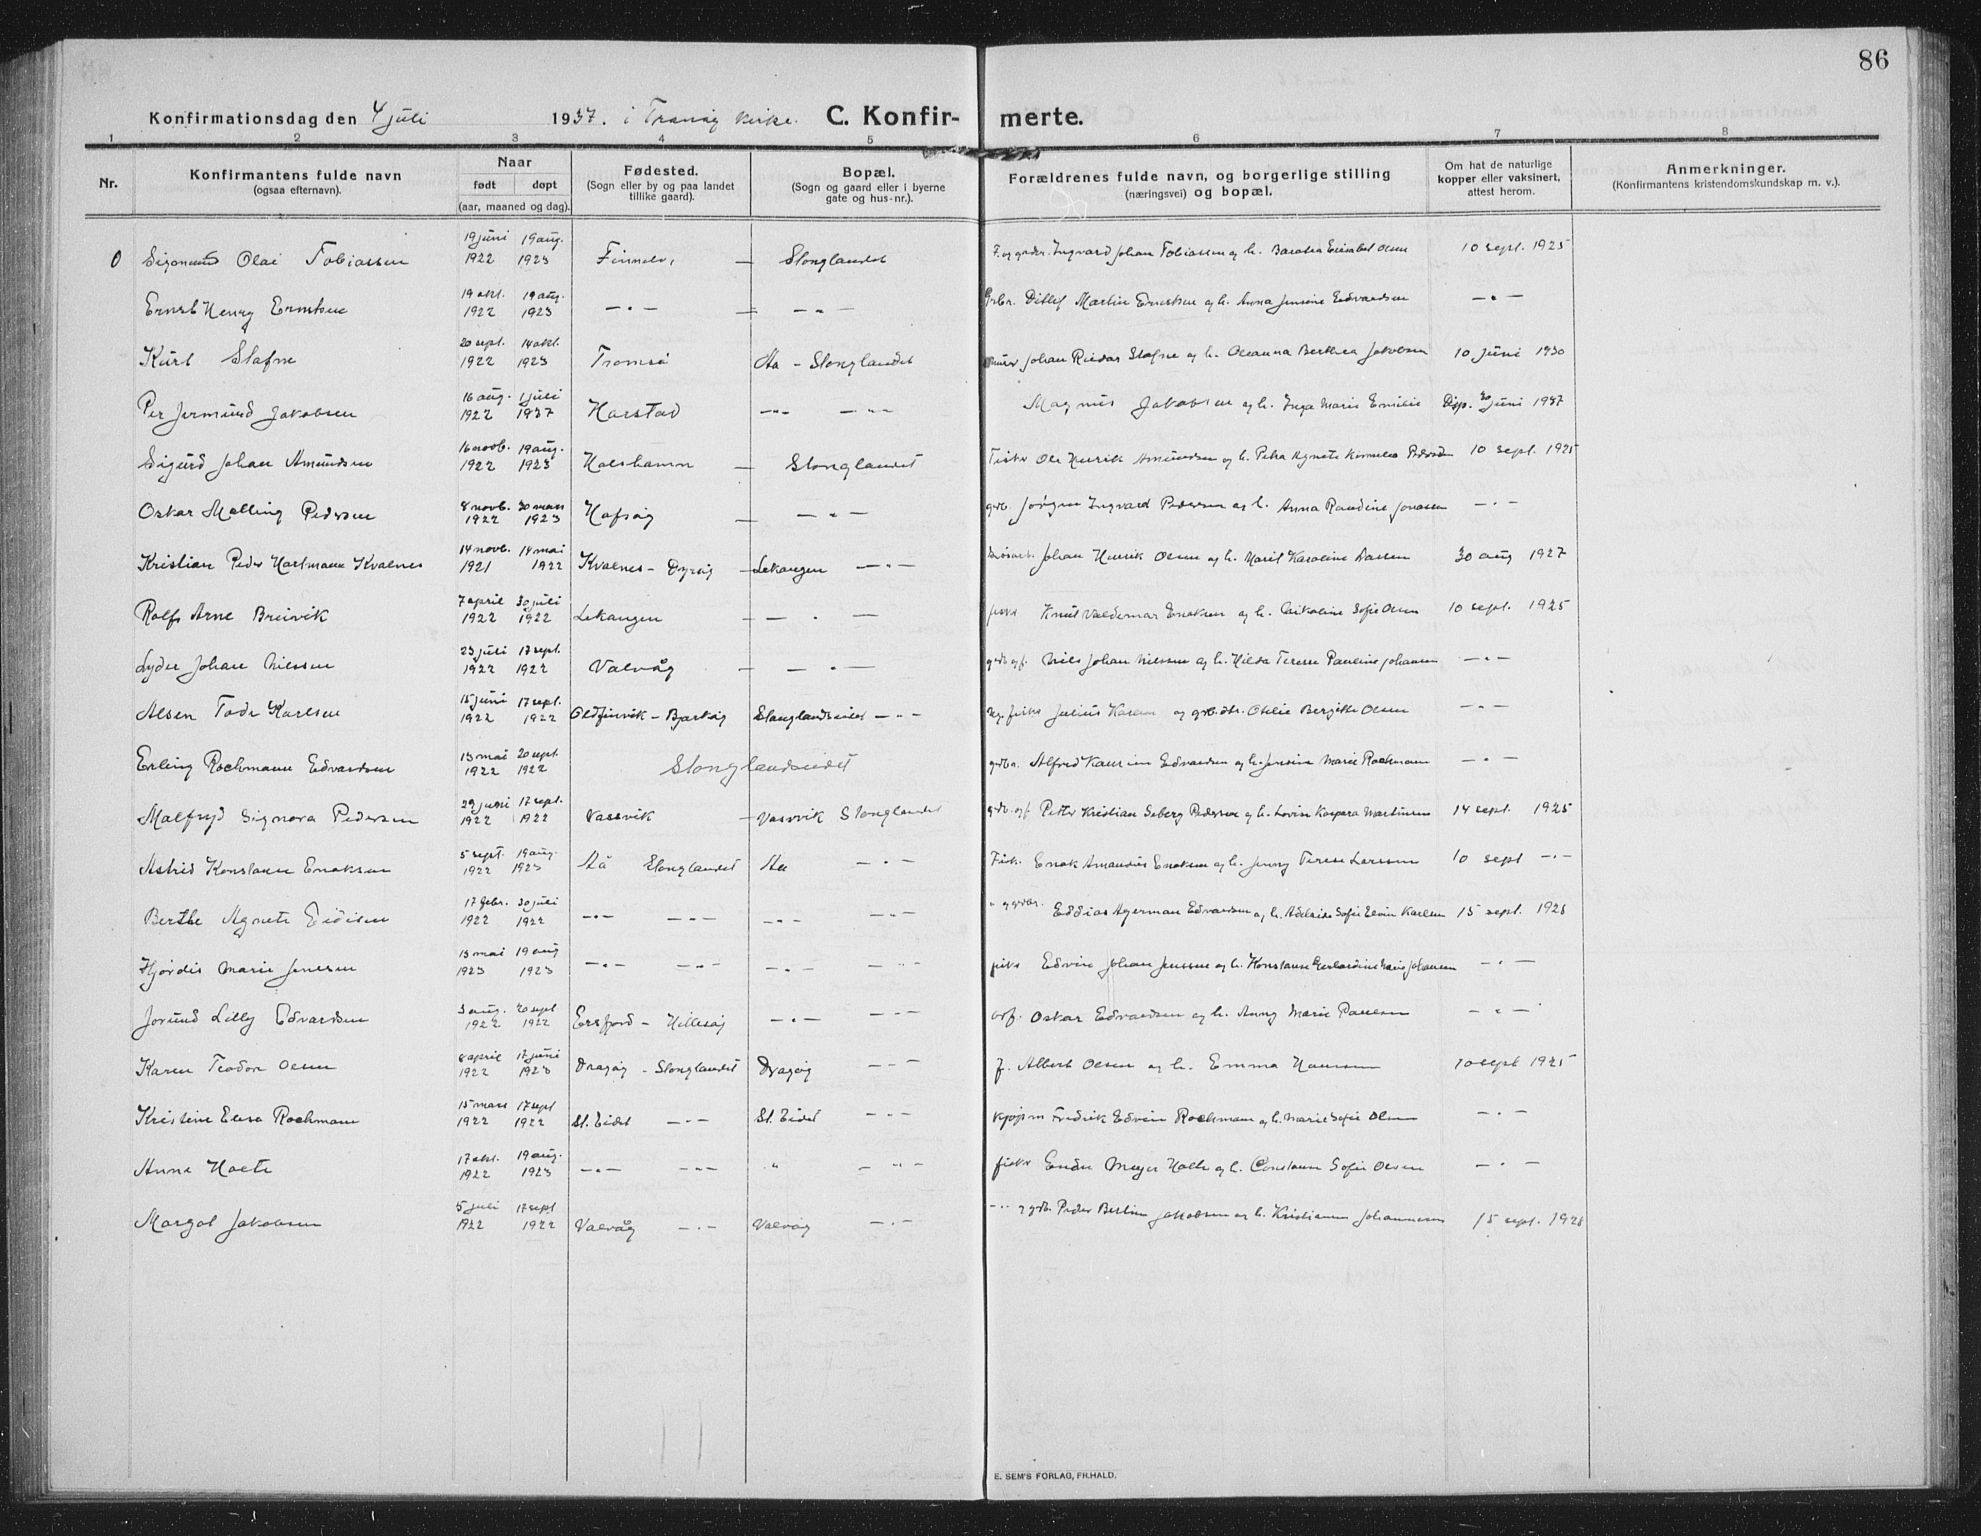 86
Konfirmationsdag den 4 juli 1937. i Tranøy kirke. C. Konfir- merte.
1 2 3 4 5 6 7 8
Nr. Konfirmantens fulde navn (ogsaa efternavn). Naar født døpt (aar, maaned og dag). Fødested. (Sogn eller by og paa landet tillike gaard). Bopæl. (Sogn og gaard eller i byerne gate og hus-nr.). Forældrenes fulde navn, og borgerlige stilling (næringsvei) og bopæl. Om hat de naturlige kopper eller vaksinert, attest herom. Anmerkninger. (Konfirmantens kristendomskundskap m. v.).
0 Sigmund Olai Tobiassen 19 juni 1922 19 aug. 1923 Finnelv, — Stonglandet Ingvard Johan Tobiassen og h. 10 sept. 1925
Ernst Henry Erntsen 19 okt. 1922 19 aug. 1923 — " — — — " — Ditlef Martin og h. Anna Jensine Edvardsen — " —
Kurt Slafne 20 sept. 1922 14 okt. 1923 Tromsø Aa - Stonglandet Johan Reidar Slafne og h. Oleanna Berthea Jakobsen 10 juni 1930
Per Jermund Jakobsen 16 aug. 1922 1 juli 1937 Harstad — " — — " — Magnus Jakobsen og h. Inga Marie Emilie Disp. 30 juni 1937
Sigurd Johan Amundsen 16 novb. 1922 19 aug. 1923 Halshamn — Stonglandet Fisker Ole Henrik Amundsen og h. Petra Agnete 10 sept. 1925
Oskar Malling Pedersen 8 novb. 1922 30 mars 1923 Hofsøy — — " — grb. Jørgen Ingvard Pedersen og h. Anna Randine Jonassen — " —
Kristian Peder Hartmann Kvalnes 14 novb. 1921 14 mai 1922 Kvalnes - Dyrøy — Lekangen — " — Johan Henrik Olsen og h. Marit Karoline 30 aug 1927
Rolf Arne Breivik 7 april 1922 30 juli 1922 Lekangen — — " — Knut Valdemar Enoksen og h. Nikoline Sofie Olsen 10 sept. 1925
Lyder Johan Nilssen 23 juli 1922 17 sept. 1922 Valvåg — — " — Nils Johan Nilssen og h. Hilda Terese Pauline Johansen — " —
Alsen Tode Karlsen 15 juni 1922 17 sept. 1922 Oldfinvik - Bjarkøy Stonglandseidet — " — Julius Karlsen og Otelie Bergitte Olsen — " —
Erling Rochmann Edvardsen 13 mai 1922 20 sept. 1922 Stonglandseidet Alfred Edvardsen og h. Jensine Marie Rochmann — " —
Malfryd Signora Pedersen 29 juni 1922 17 sept. 1922 Vassvik — Vassvik Stonglandet Peter Kristian Seberg Pedersen og h. Lovise Kaspara Martinsen 14 sept. 1925
Astrid Konstanse Enoksen 5 sept. 1922 19 aug. 1923 Aå Stonglandet Aa — " — Fisk. Enok Amandus Enoksen og h. Jenny Terese Larssen 10 sept — " —
Berthe Agnete Eidisen 17 febr. 1922 30 juli 1922 — " — — " — — " — — " — Eddias Agerman Edvardsen og h. Adelaide Sofie Karlsen 15 sept. 1928
Hjørdis Marie Jenssen 13 mai 1923 19 aug 1923 — " — — " — — " — — " — Edvin Johan Jenssen og h. Konstanse — " —
Jorund Lilly Edvardsen 3 aug. 1922 20 sept 1922 Ersfjord - Hillesøy — " — — " — Oskar Edvardsen og h. Anny Marie Paulsen — " —
Karen Teodora Olsen 8 april 1922 17 juni 1923 Dragøy - Stonglandet Dragøy — " — f. Albert Olsen og h. Emma Hansen 10 sept 1925
Kristine Elisa Rochmann 15 mars 1922 17 sept 1922 St. Eidet — " — St. Eidet — " — Kjøpm Fredrik Edvin Rochmann og h. Marie Sofie Olsen — " —
Anna Holte 17 okt. 1922 19 aug. 1923 — " — — " — " — " — fisker Endre Meyer Holte og h. Constanse Sofie Olsen — " —
Margot Jakobsen 5 juli 1922 17 sept 1922 Valvåg — " — Valvåg — " — Peder Bertin Jakobsen og h. Kristianna Johannesen 15 sept. 1928
E. SEM'S FORLAG, FR.HALD.